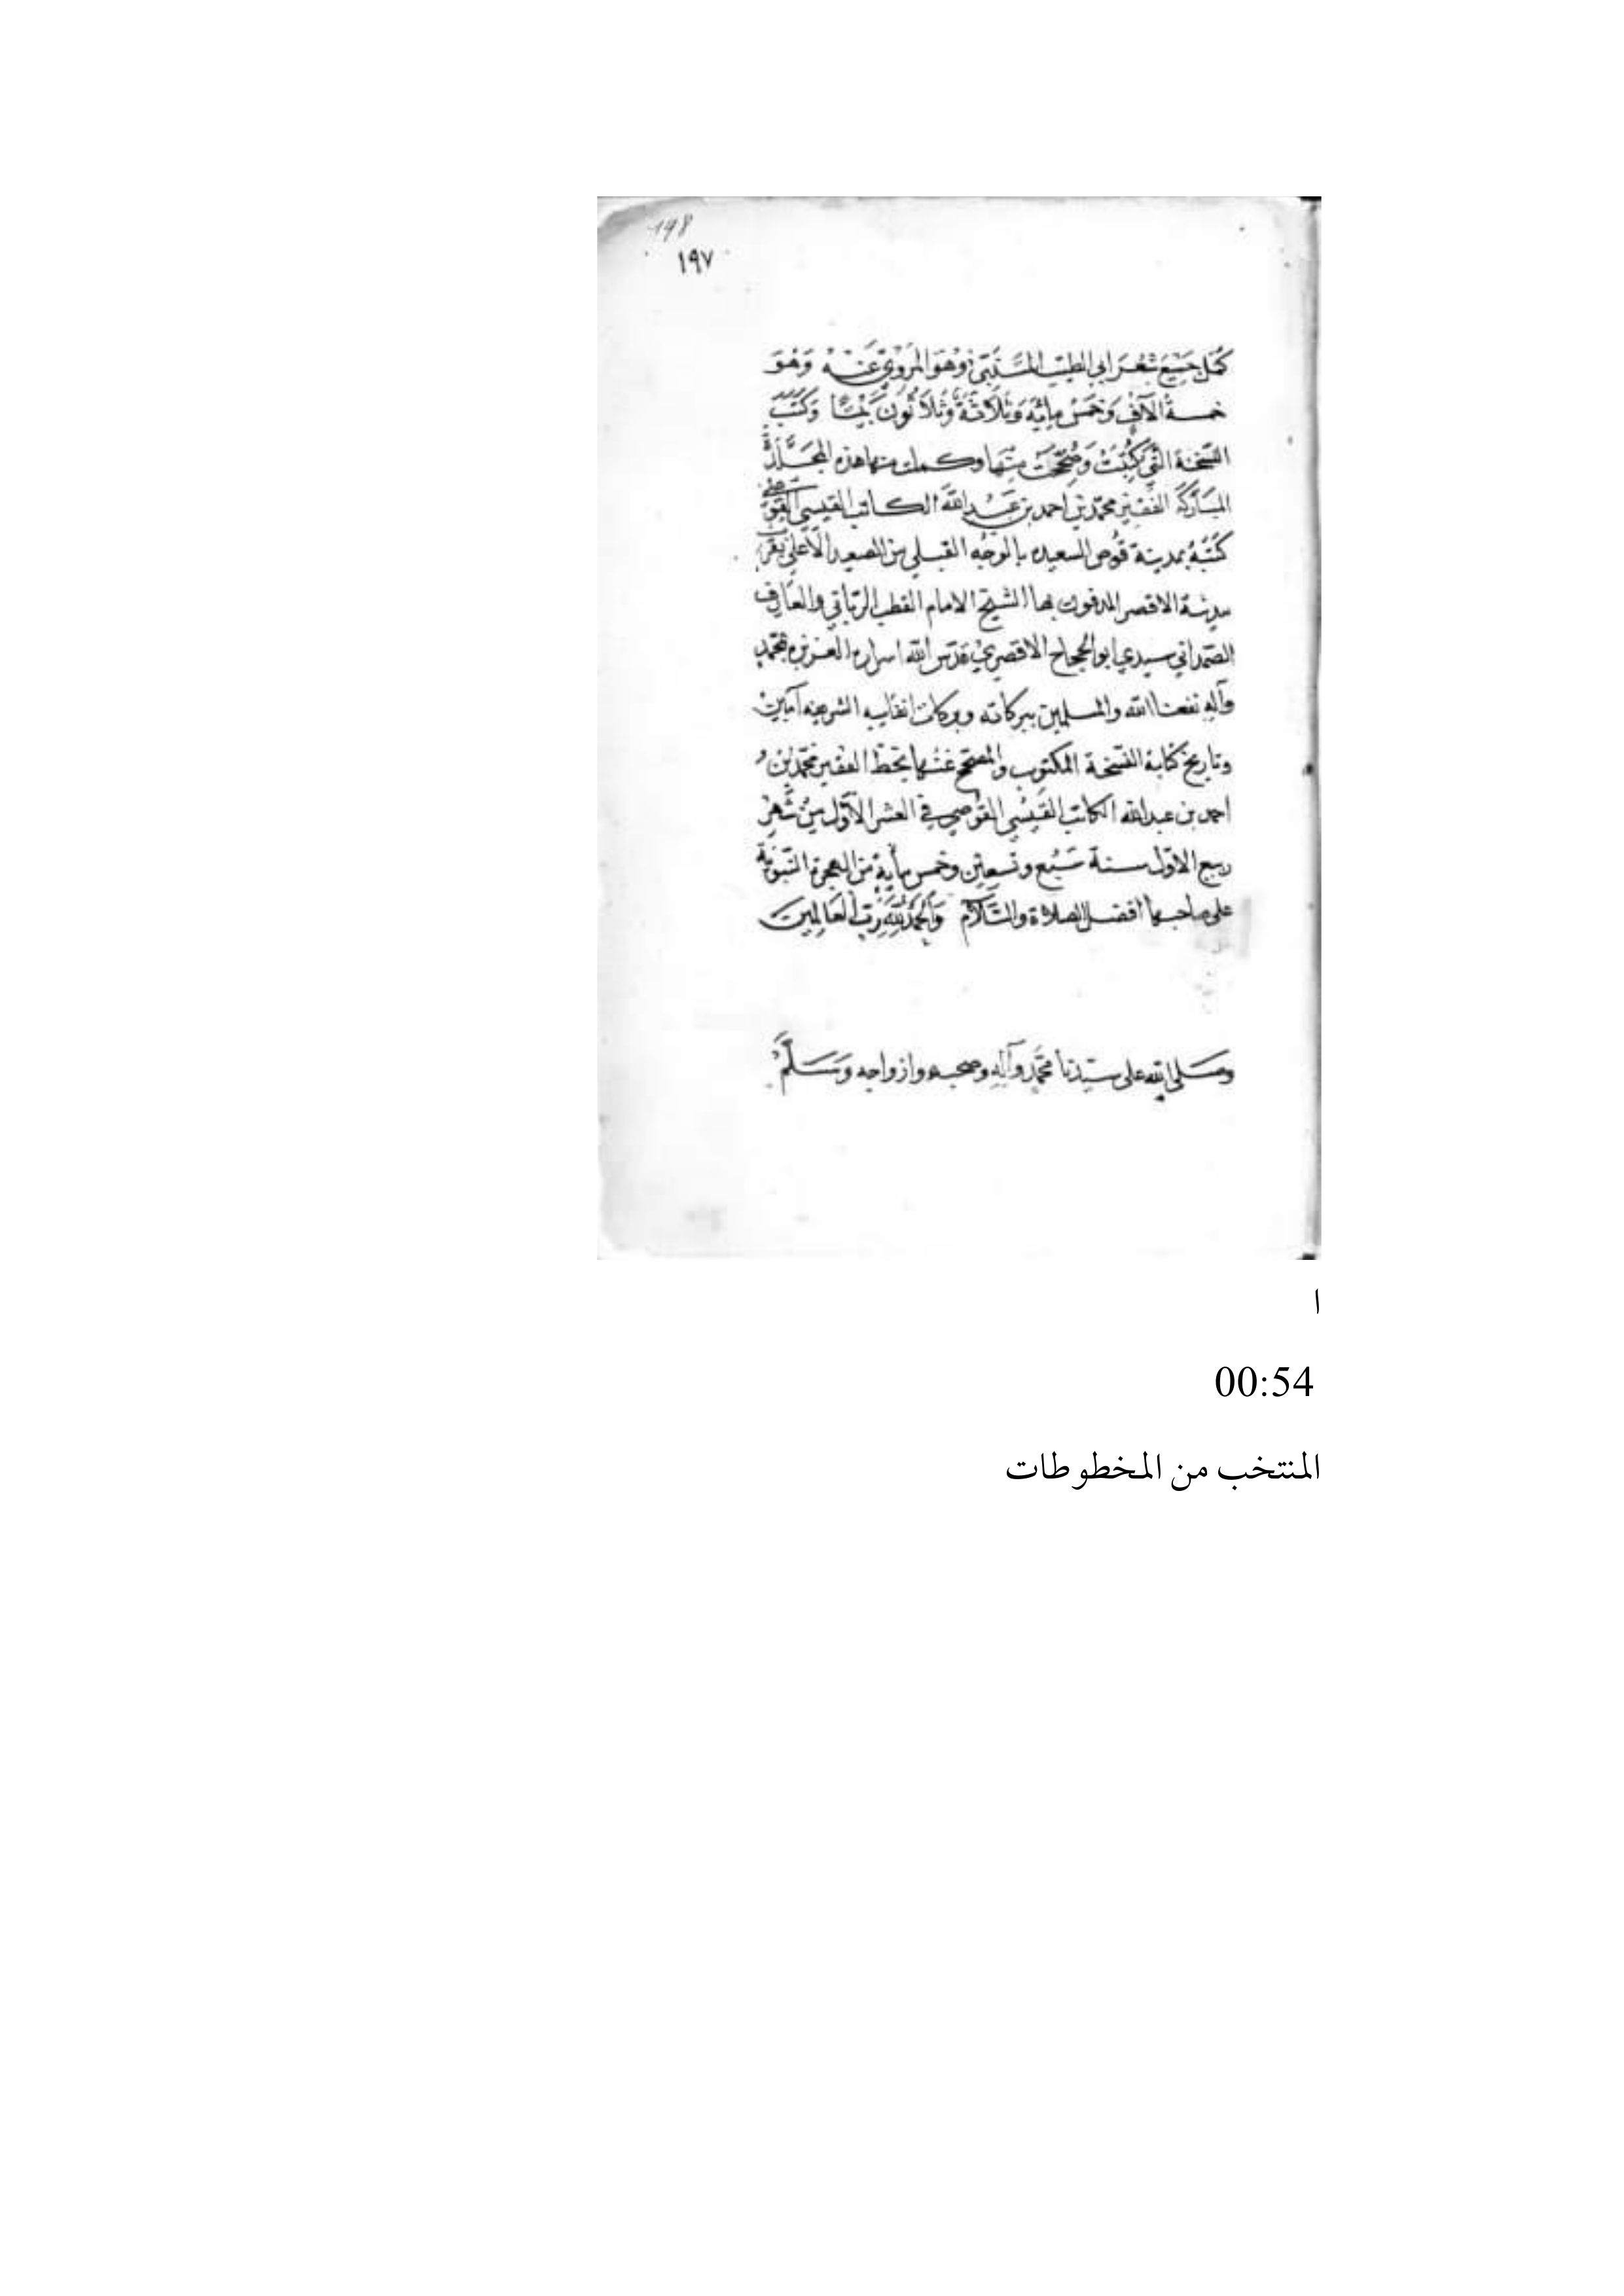 198
١٩٧
كَمُلَ جَمِيْعُ شِعْرِ ابي الطيّب المُتَنَبّي وَهُوَ المَرْوِيُّ عَنْهُ وَهُوَ
خمسة آلاف وَخمسُ مايَه وَثَلاثَةٌ وَثَلاثُونَ بَيْتًا وَكَتَبَ
النّسخة التي كُتِبَتْ وَصُحِّحَتْ مِنْهَا وكملت منها هذه المجَلّدَة
المبَارَكة الفقير محمّد بن احمد بن عَبْد الله الكاتب القيسي القوصي
كَتَبَهُ بمدينة قوص السعيده بالوجه القبلي من الصعيد الأعلى بقرب
مدينة الاقصر المدفون بها الشيخ الامام القطب الربّاني والعَارف
الصّمداني سيدي ابو الحجاج الاقصري قدّس الله اسراره العزيزه بمحمّدٍ
وآلهِ نفعنا الله والمسلمين ببركاته وبركات انفاسه الشريفه آمين
وتاريخ كتابة النّسخة المكتوب والمصحّح عَنْها بخط الفقير محمّد بْن
احمد بن عبد الله الكاتب القَيْسي القوصي في العشر الأوّل مِنْ شَهْرِ
ربيع الاوّل سنة سَبْع وتسعين وخمس مأية من الهجرة النّبَويّة
على صاحبها افضل الصلاة والسَّلام وَالحمْدُ للهِ رَبِّ العَالمِينَ
وصَلى الله على سَيّدنا محَمَّد وآلهِ وصحبه وازواجه وَسَلَّمَ
ا
00:54
المنتخب من المخطوطات